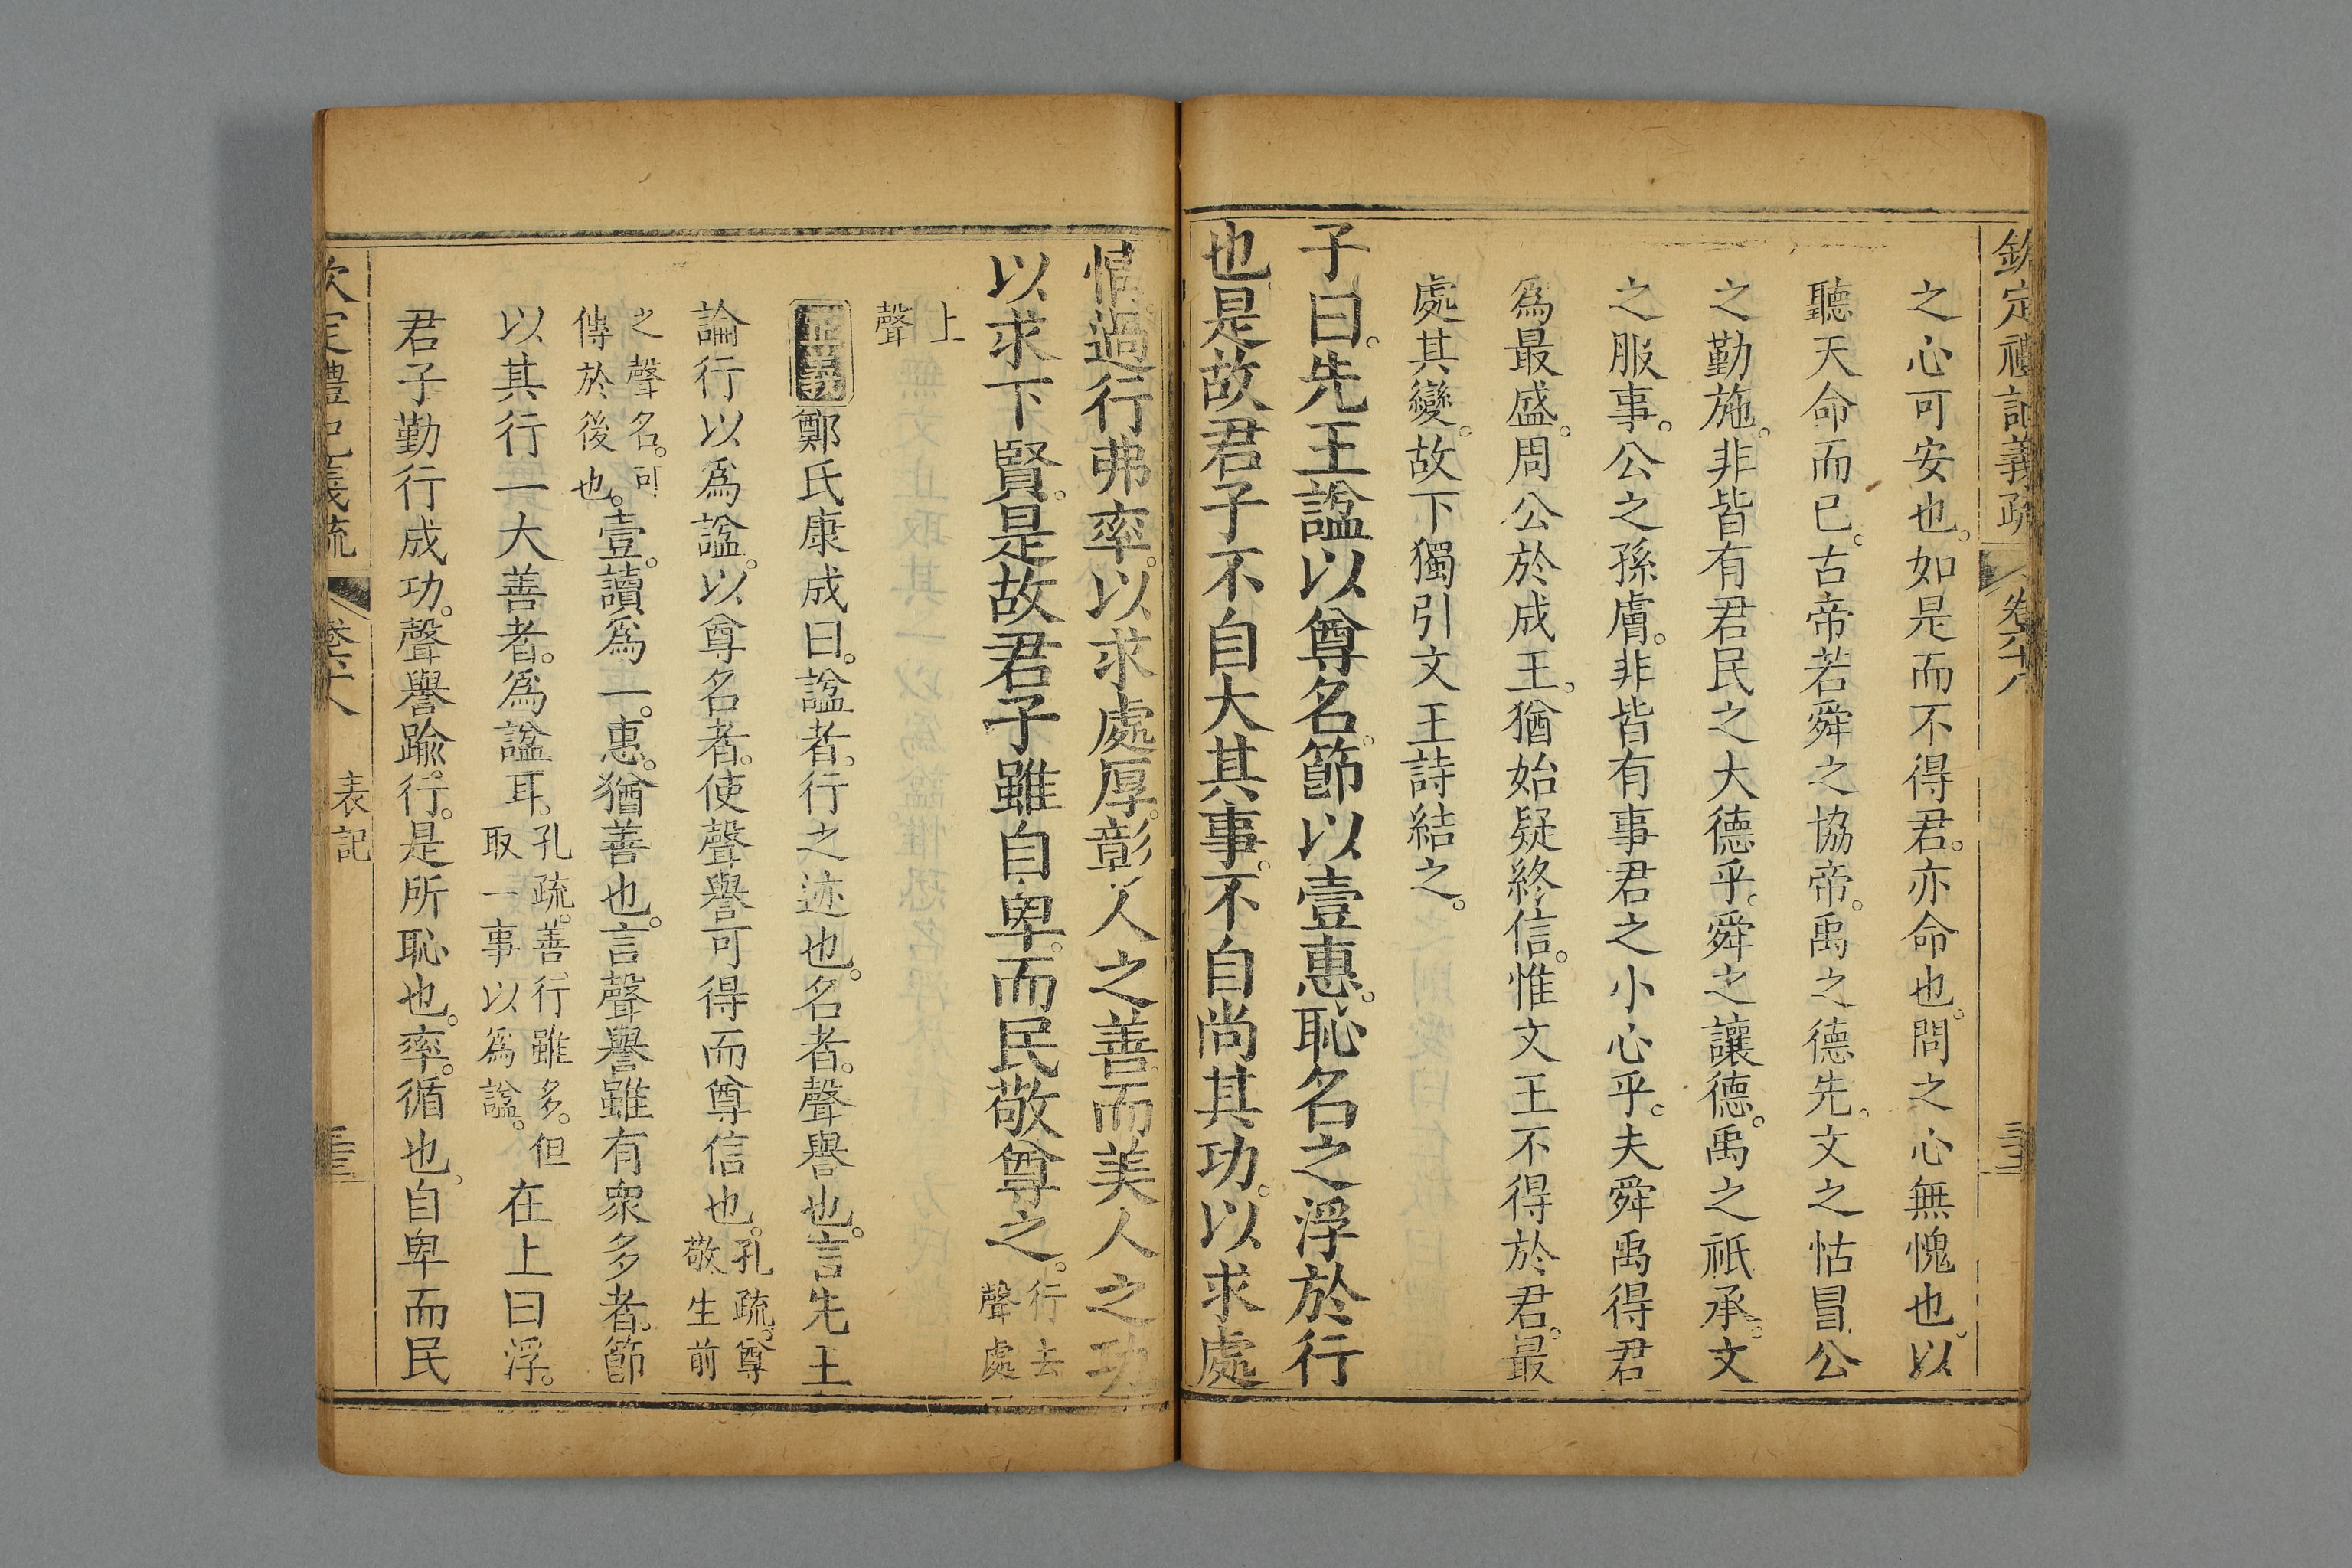 欽定禮記義疏 卷六十八
之心可安也。如是而不得君。亦命也。問之心無愧也。以
聽天命而已。古帝若舜之協帝。禹之德先。文之怙冒。公
之勤施。非皆有君民之大德乎。舜之讓德。禹之祇承。文
之服事。公之孫膚。非皆有事君之小心乎。夫舜禹得君
爲最盛。周公於成王。猶始疑終信。惟文王不得於君。最
處其變。故下獨引文王詩結之。
子曰。先王諡以尊名。節以壹惠。恥名之浮於行
也。是故君子不自大其事。不自尚其功。以求處
情。過行弗率。以求處厚。彰人之善。而美人之功
以求下賢。是故君子雖自卑。而民敬尊之。行去
聲處
上
聲
正義鄭氏康成曰。諡者。行之迹也。名者。聲譽也。言先王
論行以爲諡。以尊名者。使聲譽可得而尊信也。孔疏。尊
敬生前
之聲名。可
傳於後也。壹。讀爲一。惠。猶善也。言聲譽雖有衆多者。節
以其行一大善者。爲諡耳。孔疏。善行雖多。但
取一事以爲諡。在上曰浮。
君子勤行成功。聲譽踰行。是所恥也。率。循也。自卑而民
欽定禮記義疏 卷六十八 表記